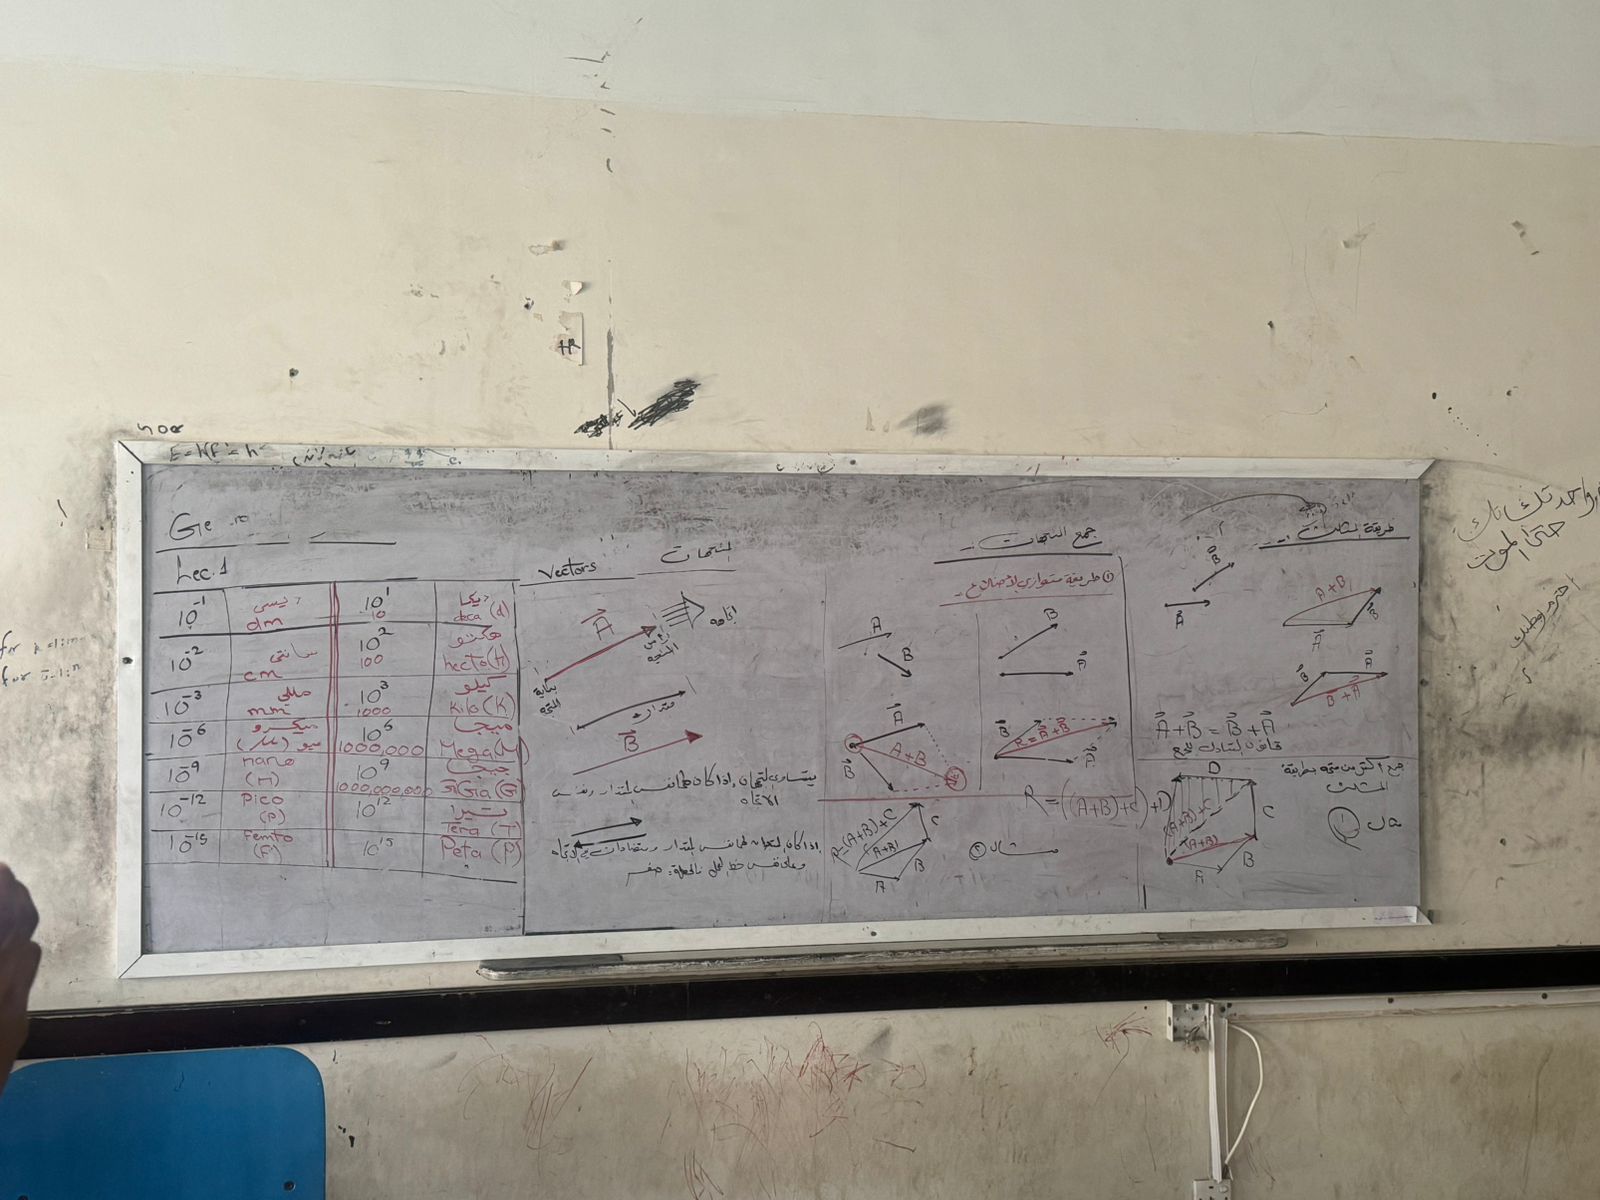 HR
Lec.1
10⁻¹ ديسي dm 10¹ 10 ديكا deca (d)
10⁻² سانتي cm 10² 100 هكتو hecto(H)
10⁻³ مللي mm 10³ 1000 كيلو Kilo(K)
10⁻⁶ ميكرو ميو (μ) 10⁶ 1000,000 ميجا Mega(M)
10⁻⁹ nano (n) 10⁹ 1000,000,000 جيجا Giga(G)
10⁻¹² Pico (P) 10¹² تيرا Tera (T)
10⁻¹⁵ Femto (F) 10¹⁵ Peta (P)
Vectors المتجهات
A
اتجاه
بداية المتجه
مقدار
B
يتساوى المتجهان إذا كان لهما نفس المقدار ونفس
الاتجاه
إذا كان المتجهان لهما نفس المقدار ومتضادان في الاتجاه
وعلى نفس خط العمل بالمحصلة: صفر
جمع المتجهات
① طريقة متوازي الأضلاع
A
B
B
A
A
A+B
B
B
R = A+B
A
R = ((A+B)+C)+D
R=(A+B)+C
C
(A+B)
B
A
مثال ②
طريقة المثلث
B
A
A+B
B
A
A
B
B+A
A+B = B+A
قانون التبادل للجمع
جمع أكثر من متجه بطريقة
المثلث
مثال ①
D
(A+B)+C
C
(A+B)
B
A
حتى الموت